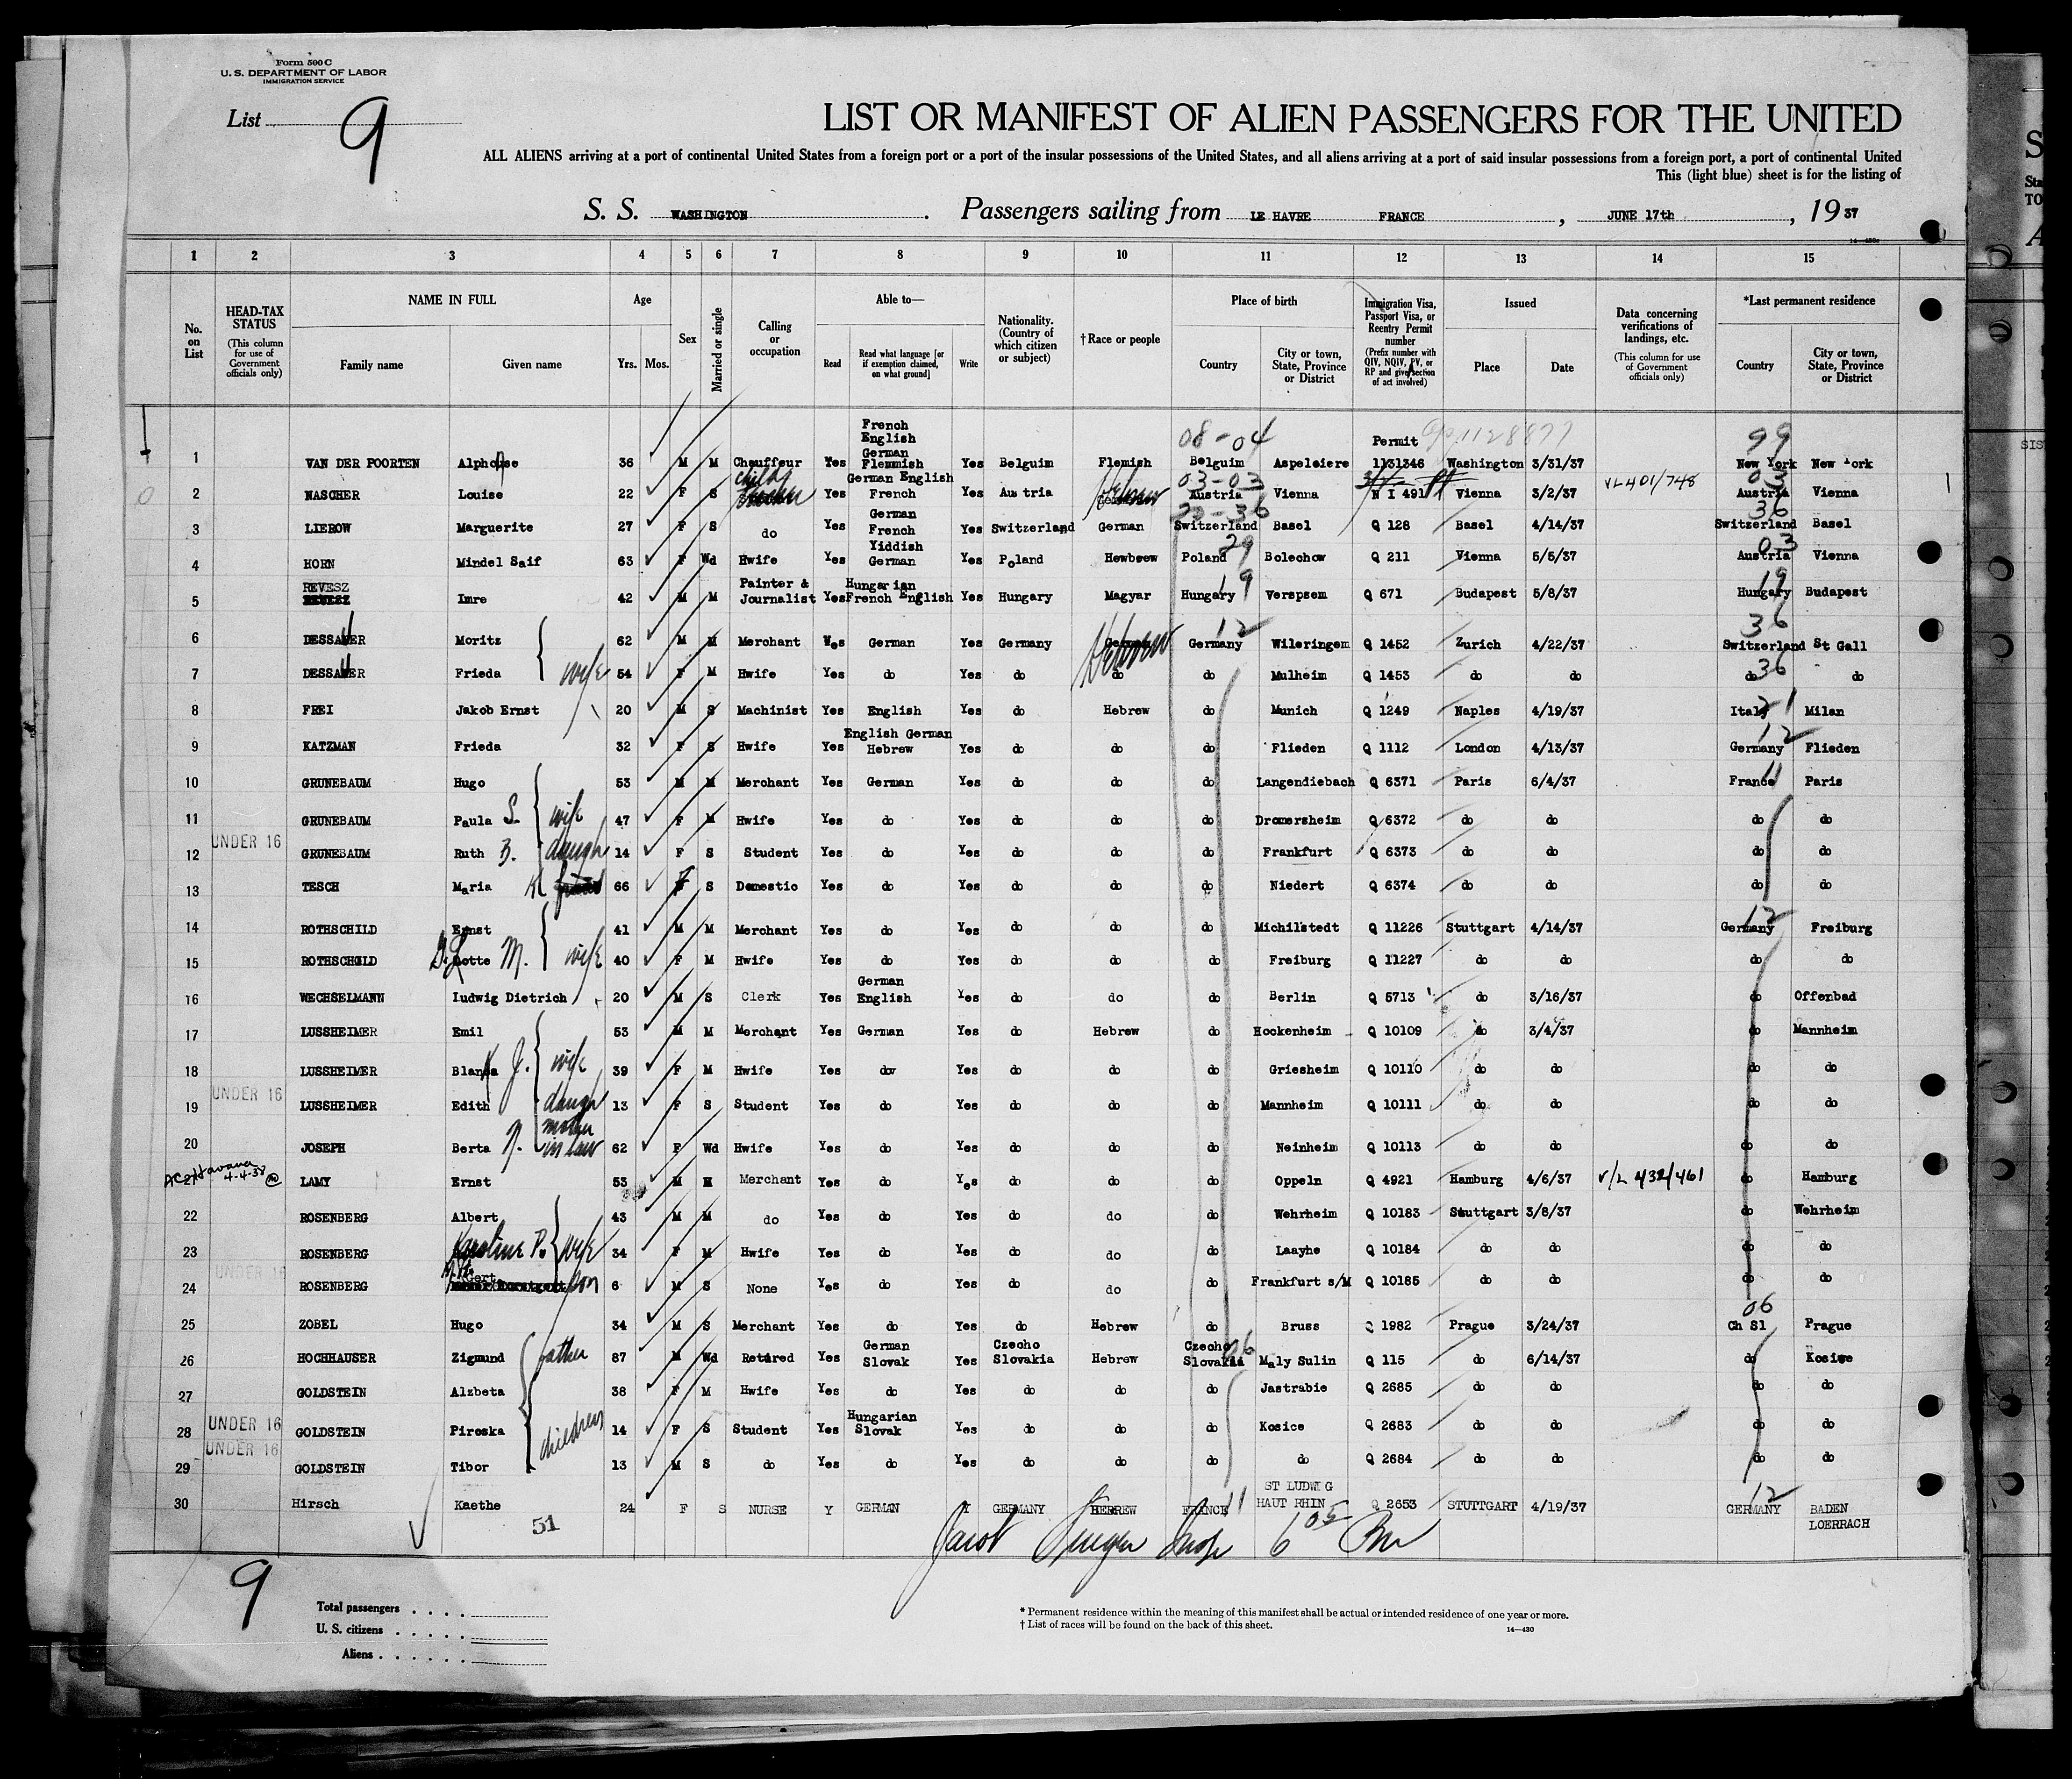 Form 500 C
U. S. DEPARTMENT OF LABOR
IMMIGRATION SERVICE
List 9
LIST OR MANIFEST OF ALIEN PASSENGERS FOR THE UNITED
ALL ALIENS arriving at a port of continental United States from a foreign port or a port of the insular possessions of the United States, and all aliens arriving at a port of said insular possessions from a foreign port, a port of continental United
This (light blue) sheet is for the listing of
S. S. WASHINGTON . Passengers sailing from LE HAVRE FRANCE , JUNE 17th , 19 37
1 2 3 4 5 6 7 8 9 10 11 12 13 14 15
No. on List
HEAD-TAX STATUS (This column for use of Government officials only)
NAME IN FULL Family name Given name
Age Yrs. Mos.
Sex
Married or single
Calling or occupation
Able to— Read Read what language [or if exemption claimed, on what ground] Write
Nationality. (Country of which citizen or subject)
† Race or people
Place of birth Country City or town, State, Province or District
Immigration Visa, Passport Visa, or Reentry Permit number (Prefix number with QIV, NQIV, PV, or RP and give section of act involved)
Issued Place Date
Data concerning verifications of landings, etc. (This column for use of Government officials only)
*Last permanent residence Country City or town, State, Province or District
1 VAN DER POORTEN Alphonse 36 M M Chauffeur Yes French English German Flemmish Yes Belguim Flemish 08-04 Belguim Aspeleiere Permit 1131346 Washington 3/31/37 99 New York New York
2 NASCHER Louise 22 F S Yes German English French Yes Austria Hebrew 03-03 Austria Vienna N I 491 Vienna 3/2/37 VL 401/748 03 Austria Vienna
3 LIEROW Marguerite 27 F S do Yes German French Yes Switzerland German Switzerland Basel Q 128 Basel 4/14/37 36 Switzerland Basel
4 HORN Mindel Saif 63 F Wd Hwife Yes Yiddish German Yes Poland Hewbrew Poland 29 Bolechow Q 211 Vienna 5/5/37 03 Austria Vienna
5 REVESZ Imre 42 M M Painter & Journalist Yes Hungarian French English Yes Hungary Magyar Hungary 19 Verspsem Q 671 Budapest 5/8/37 19 Hungary Budapest
6 DESSAUER Moritz 62 M M Merchant Yes German Yes Germany Hebrew Germany 12 Wileringem Q 1452 Zurich 4/22/37 36 Switzerland St Gall
7 DESSAUER Frieda wife 54 F M Hwife Yes do Yes do do do Mulheim Q 1453 do do do 36 do
8 FREI Jakob Ernst 20 M S Machinist Yes English Yes do Hebrew do Munich Q 1249 Naples 4/19/37 Italy 21 Milan
9 KATZMAN Frieda 32 F S Hwife Yes English German Hebrew Yes do do do Flieden Q 1112 London 4/13/37 12 Germany Flieden
10 GRUNEBAUM Hugo 53 M M Merchant Yes German Yes do do do Langendiebach Q 6371 Paris 6/4/37 France 11 Paris
11 GRUNEBAUM Paula S. wife 47 F M Hwife Yes do Yes do do do Dromersheim Q 6372 do do do do
12 UNDER 16 GRUNEBAUM Ruth B. daugh 14 F S Student Yes do Yes do do do Frankfurt Q 6373 do do do do
13 TESCH Maria K 66 F S Domestic Yes do Yes do do do Niedert Q 6374 do do do do
14 ROTHSCHILD Ernst 41 M M Merchant Yes do Yes do do do Michilstedt Q 11226 Stuttgart 4/14/37 12 Germany Freiburg
15 ROTHSCHILD Lotte M. wife 40 F M Hwife Yes do Yes do do do Freiburg Q 11227 do do do do
16 WECHSELMANN Ludwig Dietrich 20 M S Clerk Yes German English Yes do do do Berlin Q 5713 do 3/16/37 do Offenbad
17 LUSSHEIMER Emil 53 M M Merchant Yes German Yes do Hebrew do Hockenheim Q 10109 do 3/4/37 do Mannheim
18 LUSSHEIMER Blanka J. wife 39 F M Hwife Yes do Yes do do do Griesheim Q 10110 do do do do
19 UNDER 16 LUSSHEIMER Edith daugh 13 F S Student Yes do Yes do do do Mannheim Q 10111 do do do do
20 JOSEPH Berta N. mother in law 62 F Wd Hwife Yes do Yes do do do Neinheim Q 10113 do do do do
21 AC Havana 4-4-38 LAMY Ernst 53 M M Merchant Yes do Yes do do do Oppeln Q 4921 Hamburg 4/6/37 V/L 432/461 do Hamburg
22 ROSENBERG Albert 43 M M do Yes do Yes do do do Wehrheim Q 10183 Stuttgart 3/8/37 do Wehrheim
23 ROSENBERG Karoline P. wife 34 F M Hwife Yes do Yes do do do Laayhe Q 10184 do do do do
24 UNDER 16 ROSENBERG Gert son 6 M S None Yes do Yes do do do Frankfurt s/M Q 10185 do do do do
25 ZOBEL Hugo 34 M S Merchant Yes do Yes do Hebrew do Bruss Q 1982 Prague 3/24/37 06 Ch Sl Prague
26 HOCHHAUSER Zigmund father 87 M Wd Retired Yes German Slovak Yes Czecho Slovakia Hebrew Czecho Slovakia 06 Maly Sulin Q 115 do 6/14/37 do Kosice
27 GOLDSTEIN Alzbeta 38 F M Hwife Yes do Yes do do do Jastrabie Q 2685 do do do do
28 UNDER 16 GOLDSTEIN Piroska children 14 F S Student Yes Hungarian Slovak Yes do do do Kosice Q 2683 do do do do
29 UNDER 16 GOLDSTEIN Tibor 13 M S do Yes do Yes do do do do Q 2684 do do do do
30 Hirsch Kaethe 24 F S NURSE Y GERMAN Y GERMANY HEBREW FRANCE 11 ST LUDWIG HAUT RHIN Q 2653 STUTTGART 4/19/37 12 GERMANY BADEN LOERRACH
51
9
Total passengers . . . .
U. S. citizens . . . . .
Aliens . . . . . .
* Permanent residence within the meaning of this manifest shall be actual or intended residence of one year or more.
† List of races will be found on the back of this sheet.
14—430